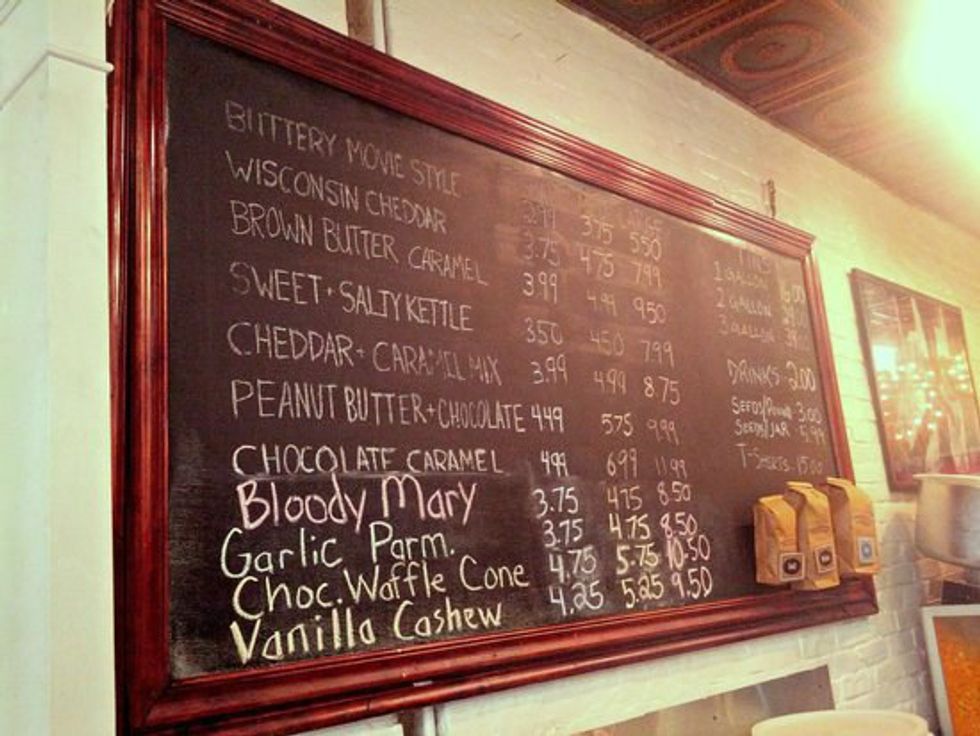 BUTTERY MOVIE STYLE 2.99 3.75 5.50
WISCONSIN CHEDDAR 3.75 4.75 7.99
BROWN BUTTER CARAMEL 3.99 4.99 9.50
SWEET + SALTY KETTLE 3.50 4.50 7.99
CHEDDAR + CARAMEL MIX 3.99 4.99 8.75
PEANUT BUTTER + CHOCOLATE 4.49 5.75 9.99
CHOCOLATE CARAMEL 4.99 6.99 11.99
Bloody Mary 3.75 4.75 8.50
Garlic Parm. 3.75 4.75 8.50
Choc. Waffle Cone 4.75 5.75 10.50
Vanilla Cashew 4.25 5.25 9.50
TINS
1 GALLON
2 GALLON
3 GALLON
DRINKS - 2.00
SEEDS/POUND 3.00
SEEDS/JAR - 5.99
T-SHIRTS - 15.00